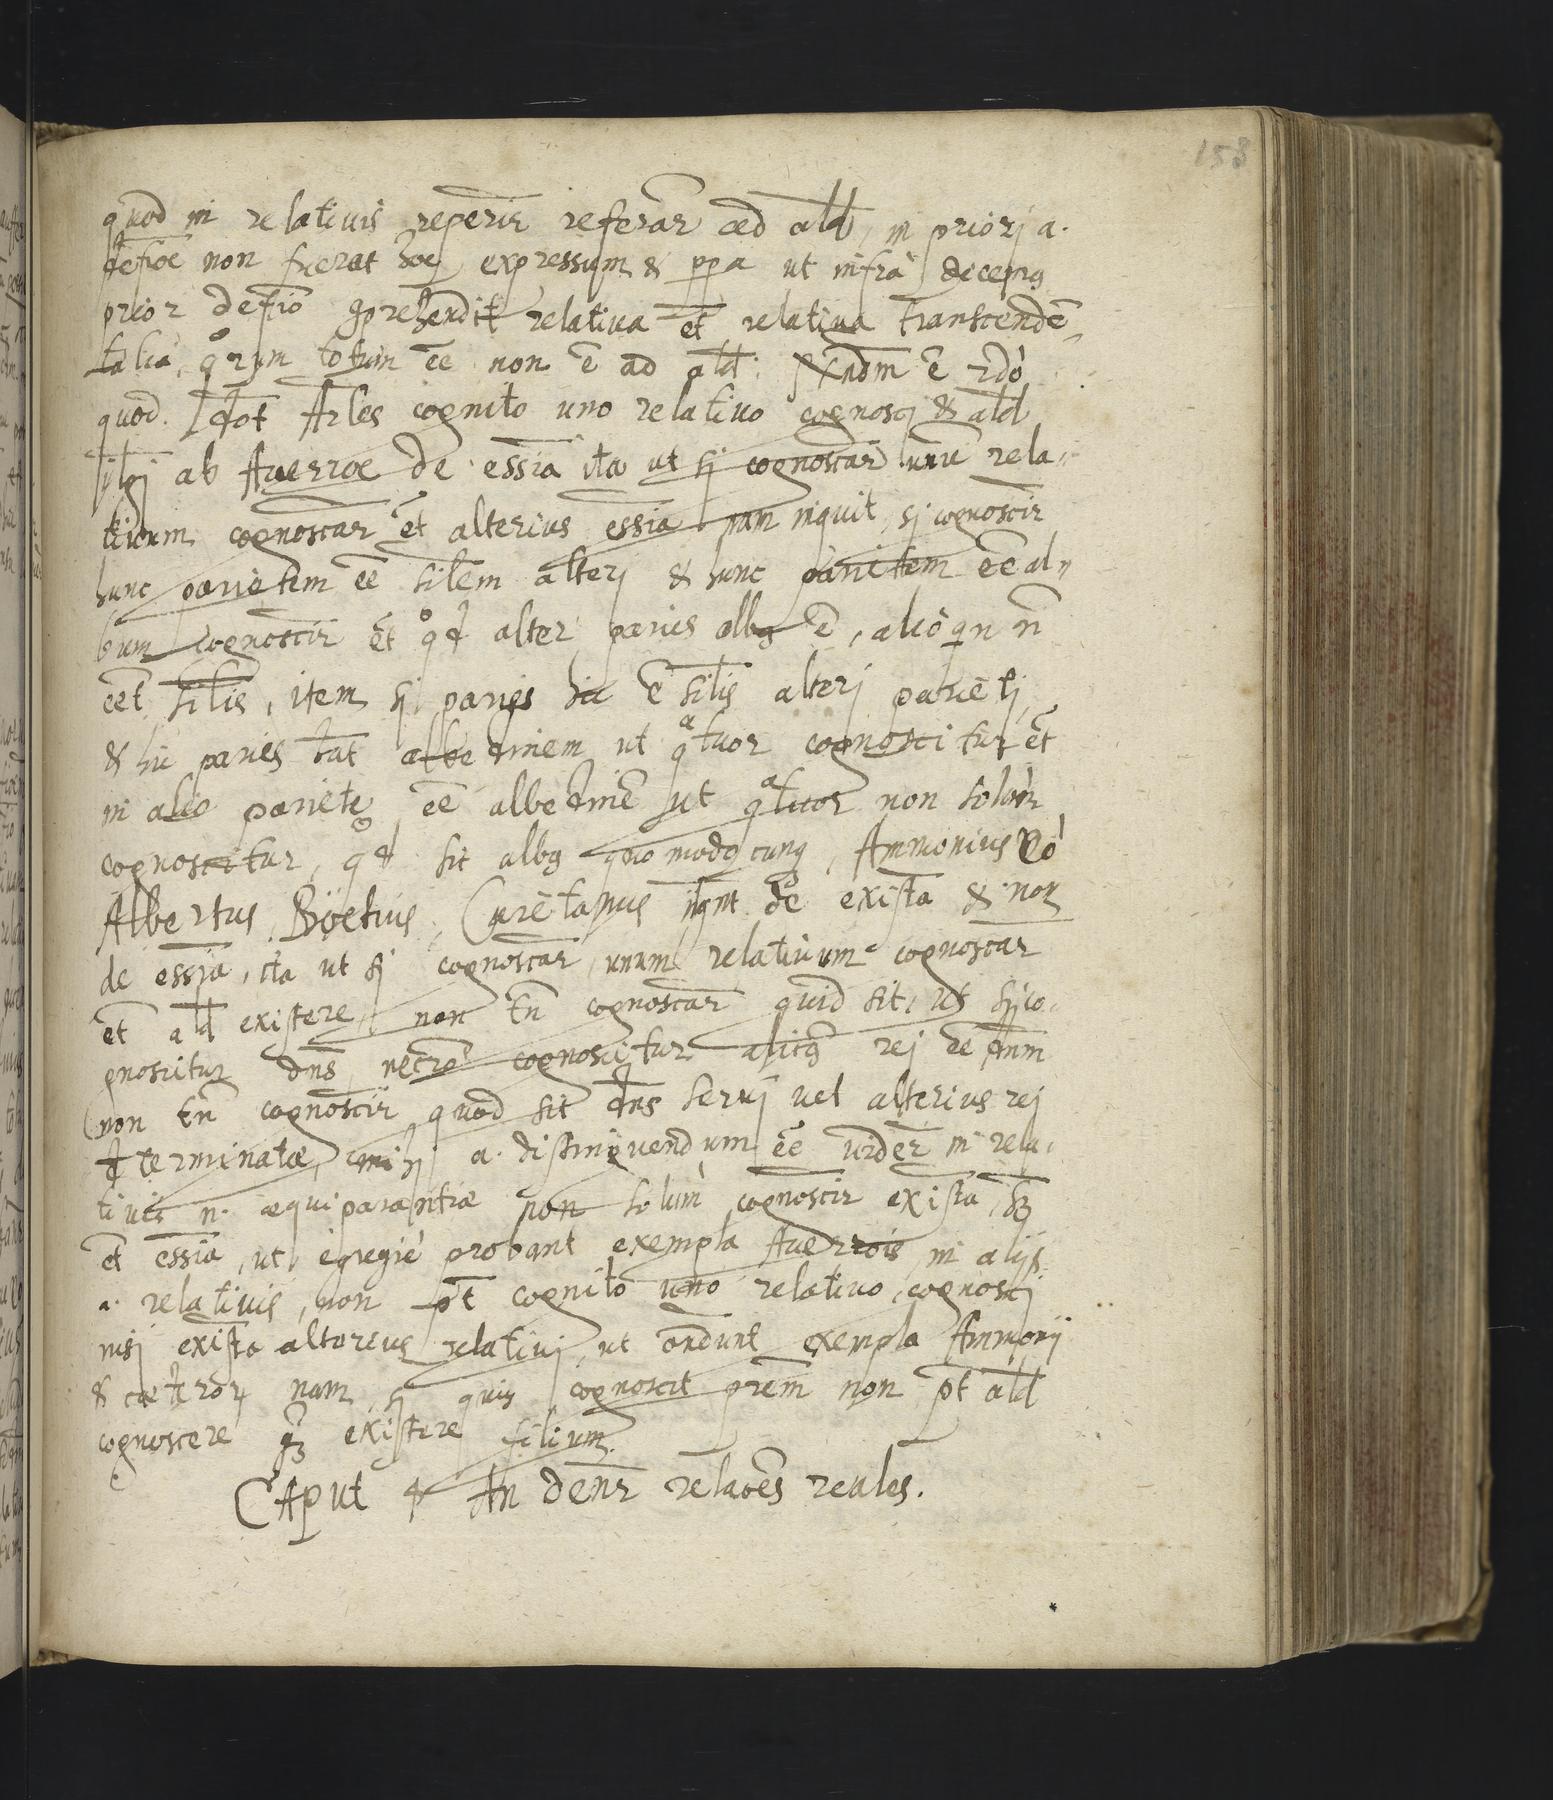 158
quod in relativis reperir̄ referar̄ ad ald̄, in priorj a.
defiōe non fuerat hoc expressum & ppa ut infrà dicemꝰ
prior defiō ꝯprehendit relativa et relativa transcendē„
talia, qͦrum totum ēē non ē ad ald̄: Nnd̄m ē 2dò
quod. Id ōt Ar̄les cognito uno relativo cognoscj & ald̄
ab Averroe de essīa ita ut sj cognoscar̄ unū rela„
tivum cognoscar̄ et̄ alterius essīa nam inquit, sj cognoscir̄
hunc parietem ēē sil̄em alterj & hunc parietem ēē al„
bum cognoscir̄ et̄ qͦd alter paries albꝰ ē, alioqn n̄
eet̄ sil̄is, item sj paries hic ē sil̄is alterj parietj,
& hic paries hāt albedinem ut qᵃtuor cognoscitur et̄
in alio pariete ēē albedinē ut qᵃtuor non solùm
cognoscitur, qͦd sit albꝰ quomodocunqꝫ, Ammonius vò
Albertus, Boetius, Curētanus īqnt de exist̄a & non
de essīa, ita ut sj cognoscar̄ unum relativum cognoscar̄
et̄ ald̄ existere, non tn̄ cognoscar̄ quid sit, ut sj co„
gnoscitur dn̄s, necr̄o cognoscitur alicꝰ rej ēē dnm
non tn̄ cognoscir̄ quod sit dn̄s servj vel alterius rej
determinatæ, mihj a. distinguendum ēē vider̄ in rela„
tivis n. æquiparantiæ non solùm cognoscir̄ exist̄a, sꝫ
et̄ essīa, ut egregiè probant exempla Averrois, in alijs
a. relativis, non pt̄ cognito uno relativo, cognoscj
nisj exist̄a alterius relativj, ut ōndunt exempla Ammonij
& cæterorꝝ nam sj quis cognoscit pr̄em non pt̄ ald̄
cognoscere qꝫ existere filium.
Caput 4 An denr̄ relatōēs reales.